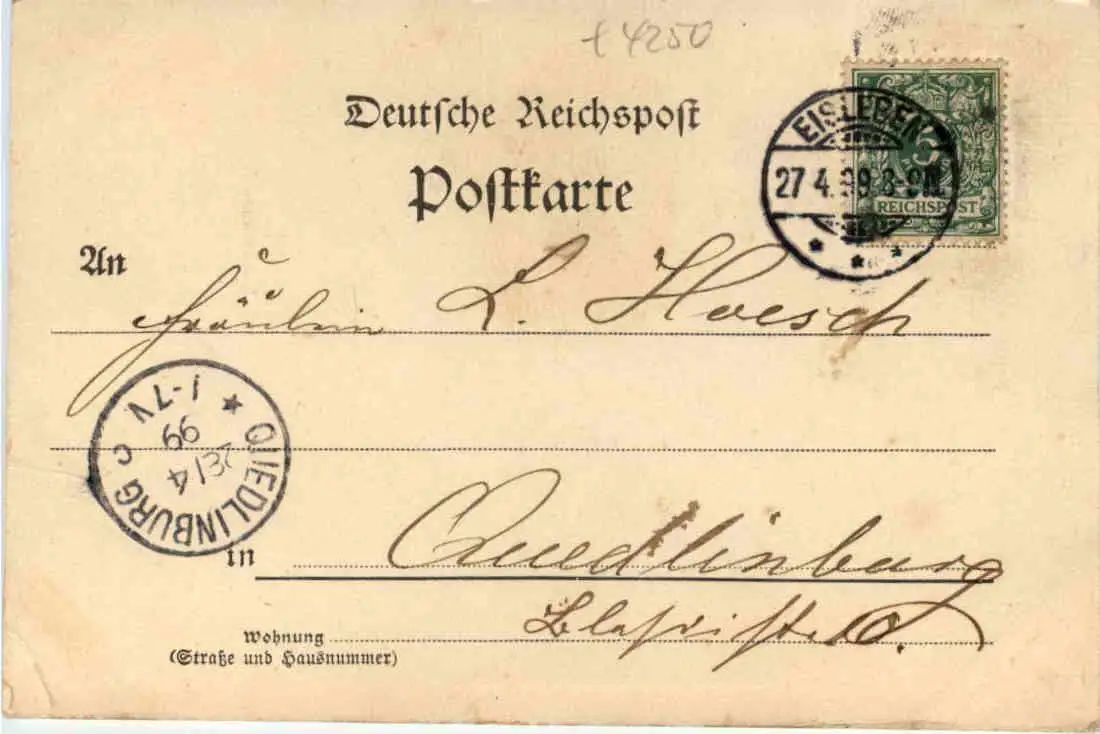 + 4250
Deutsche Reichspost
Postkarte
EISLEBEN
27.4.99.8-9N.
REICHSPOST
An
Fräulein L. Hoesch
QUEDLINBURG C
28/4
99
1-7V
in Quedlinburg
Wohnung
(Straße und Hausnummer)